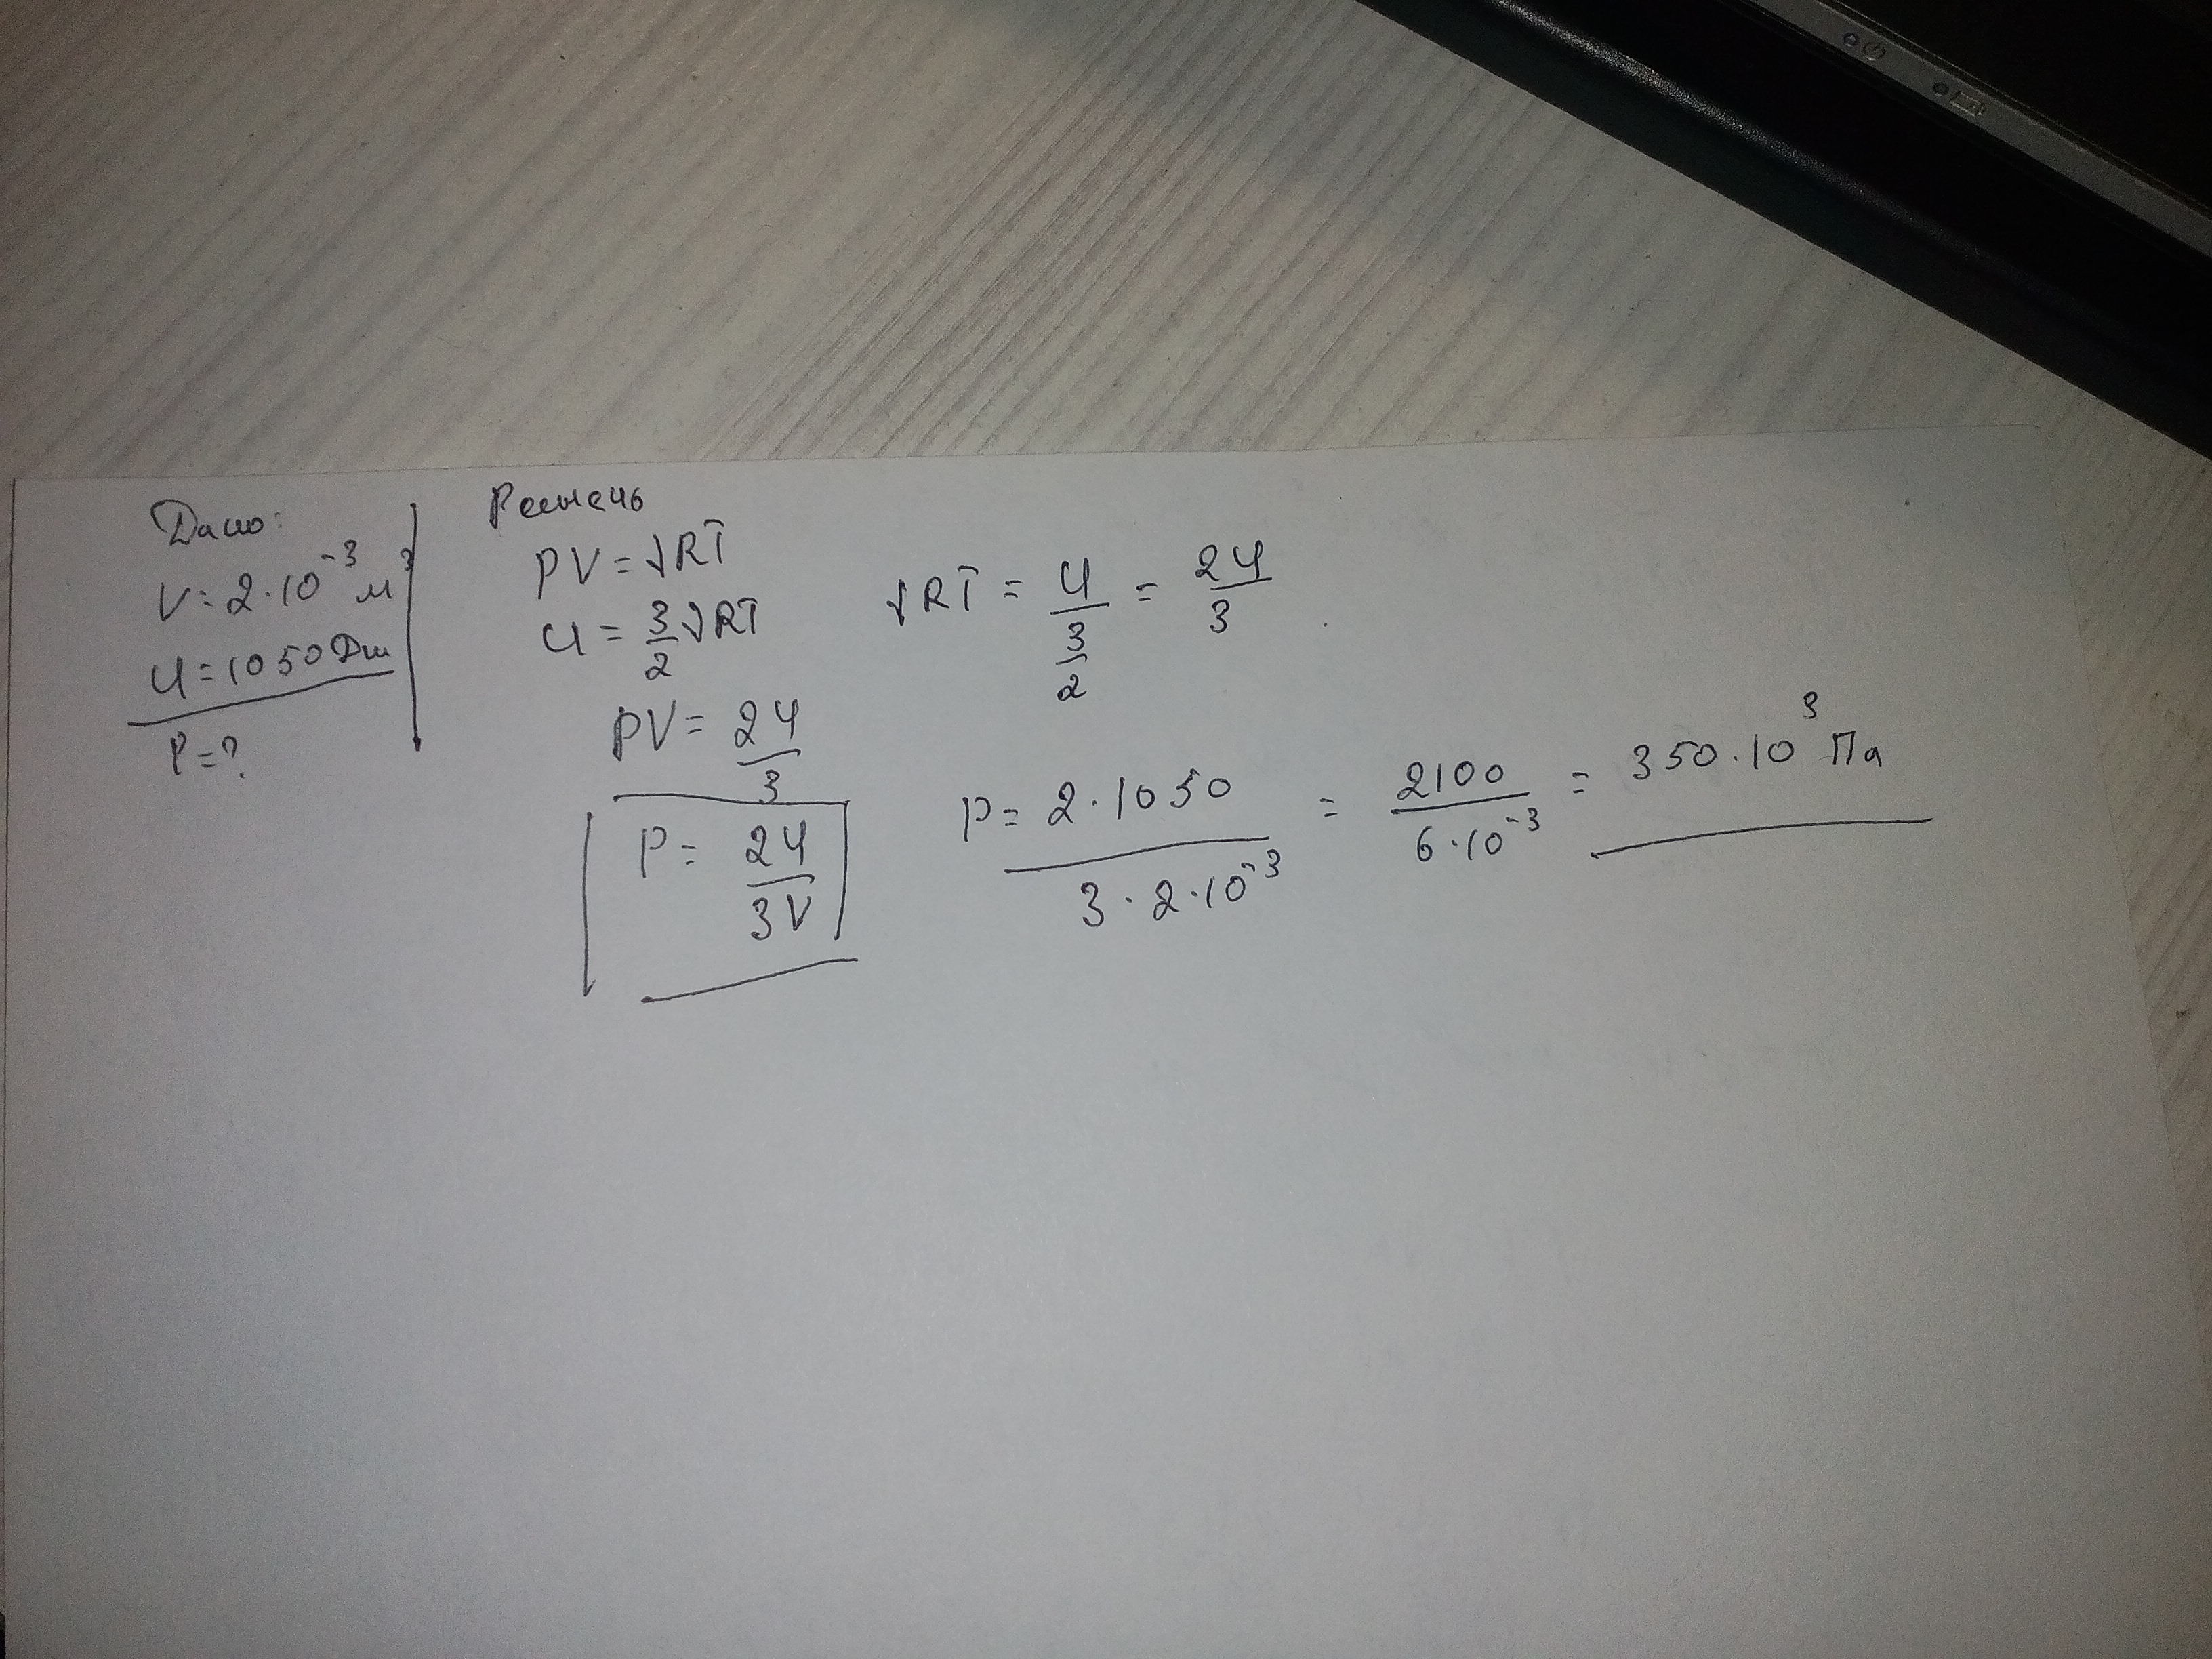 Дано:
V = 2·10⁻³ м³
U = 1050 Дж
P = ?
Решень
PV = √RT
U = 3/2 √RT
√RT = U/(3/2) = 2U/3
PV = 2U/3
P = 2U/3V
P = 2·1050/(3·2·10⁻³) = 2100/(6·10⁻³) = 350·10³ Па